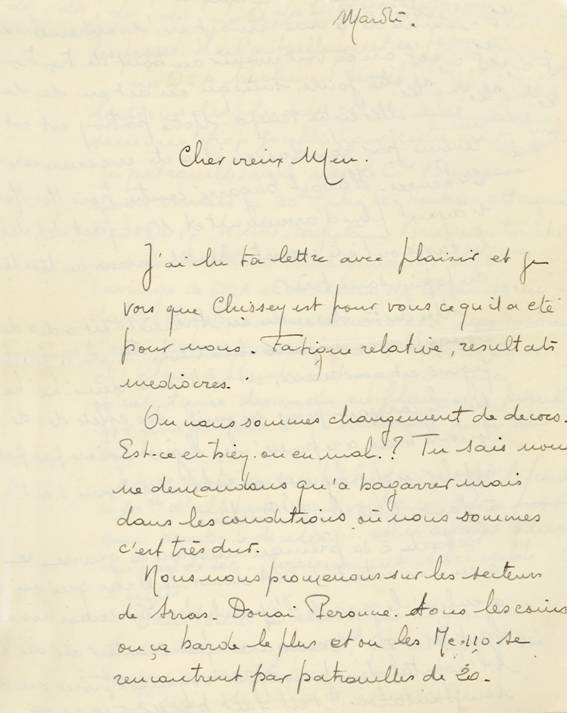 Mardi.
Cher vieux Meu.
J'ai lu ta lettre avec plaisir et je
vois que Chissey est pour vous ce qu'il a été
pour nous. Fatigue relative, resultats
mediocres.
Ou nous sommes changement de decors.
Est-ce en bien. ou en mal.? Tu sais nous
ne demandons qu'a bagarrer mais
dans les conditions où nous sommes
c'est très dur.
Nous nous promenons sur les secteurs
de Arras. Douai Peronne. tous les coins
ou ça barde le plus et ou les Me-110 se
rencontrent par patrouilles de 20.